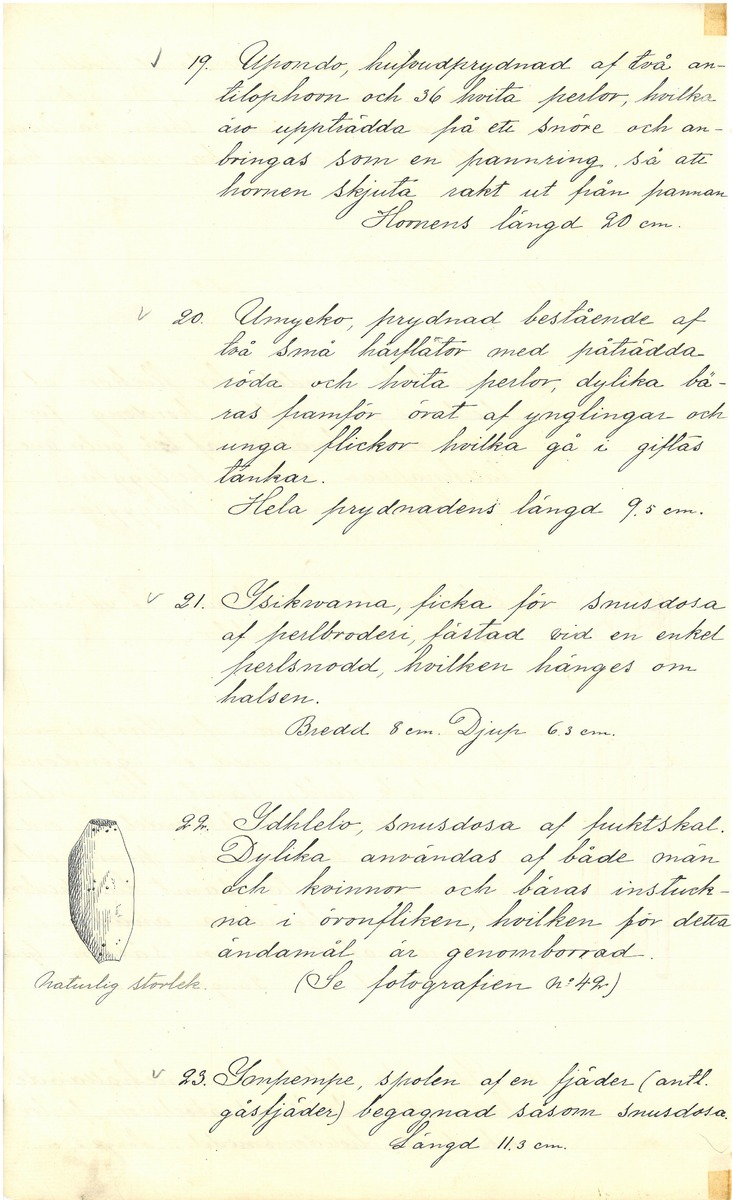 19. Upondo, hufvudprydnad af två an-
tilophorn och 36 hvita perlor, hvilka
äro uppträdda på ett snöre och an-
bringas som en pannring så att
hornen skjuta rakt ut från pannan
Hornens längd 20 cm.
20. Umyeko, prydnad bestående af
två små hårflätor med påträdda
röda och hvita perlor, dylika bä-
ras framför örat af ynglingar och
unga flickor hvilka gå i giftas
tankar.
Hela prydnadens längd 9.5 cm.
21. Ysikwama, ficka för snusdosa
af perlbroderi, fästad vid en enkel
perlsnodd, hvilken hänges om
halsen.
Bredd 8 cm. Djup 6.3 cm.
22. Ydhlelo, snusdosa af fruktskal.
Dylika användas af både män
och kvinnor och bäras instuck-
na i öronfliken, hvilken för detta
ändamål är genomborrad.
naturlig storlek.
(Se fotografien No: 42)
23. Ympempe, spolen af en fjäder (antl.
gåsfjäder) begagnad såsom snusdosa.
Längd 11.3 cm.